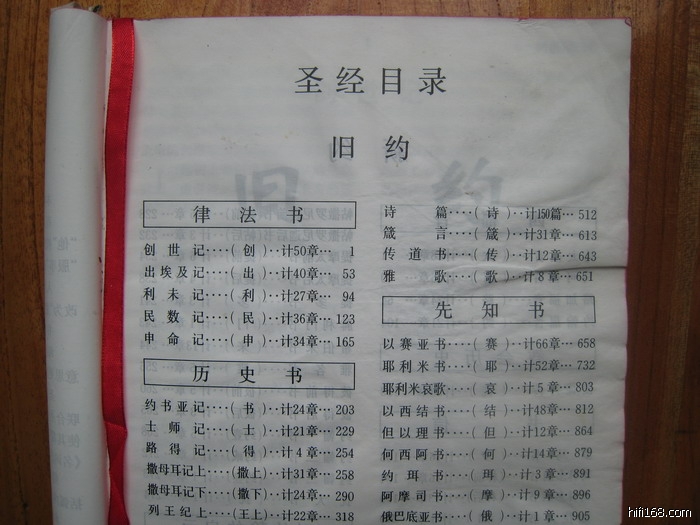 圣经目录
旧 约
律 法 书
创 世 记····( 创 )··计50章··· 1
出埃及记····( 出 )··计40章··· 53
利 未 记····( 利 )··计27章··· 94
民 数 记····( 民 )··计36章··· 123
申 命 记····( 申 )··计34章··· 165
历 史 书
约书亚记····( 书 )··计24章··· 203
士 师 记····( 士 )··计21章··· 229
路 得 记····( 得 )··计 4 章··· 254
撒母耳记上···(撒上)··计31章··· 258
撒母耳记下···(撒下)··计24章··· 290
列王纪上····(王上)··计22章··· 318
诗 篇····( 诗 )··计150篇··· 512
箴 言····( 箴 )··计31章··· 613
传 道 书····( 传 )··计12章··· 643
雅 歌····( 歌 )··计 8 章··· 651
先 知 书
以赛亚书····( 赛 )··计66章··· 658
耶利米书····( 耶 )··计52章··· 732
耶利米哀歌···( 哀 )··计 5 章··· 803
以西结书····( 结 )··计48章··· 812
但以理书····( 但 )··计12章··· 864
何西阿书····( 何 )··计14章··· 879
约 珥 书····( 珥 )··计 3 章··· 891
阿摩司书····( 摩 )··计 9 章··· 896
俄巴底亚书···( 俄 )··计 1 章··· 905
hifi168.com